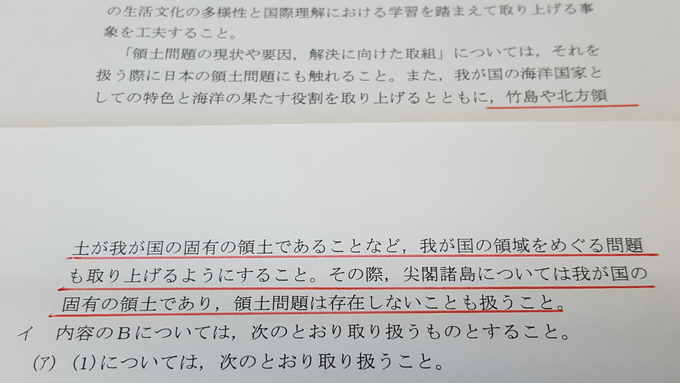 の生活文化の多様性と国際理解における学習を踏まえて取り上げる事
象を工夫すること。
「領土問題の現状や要因，解決に向けた取組」については，それを
扱う際に日本の領土問題にも触れること。また，我が国の海洋国家と
しての特色と海洋の果たす役割を取り上げるとともに，竹島や北方領
土が我が国の固有の領土であることなど，我が国の領域をめぐる問題
も取り上げるようにすること。その際，尖閣諸島については我が国の
固有の領土であり，領土問題は存在しないことも扱うこと。
イ 内容のＢについては，次のとおり取り扱うものとすること。
(ｱ) (1)については，次のとおり取り扱うこと。